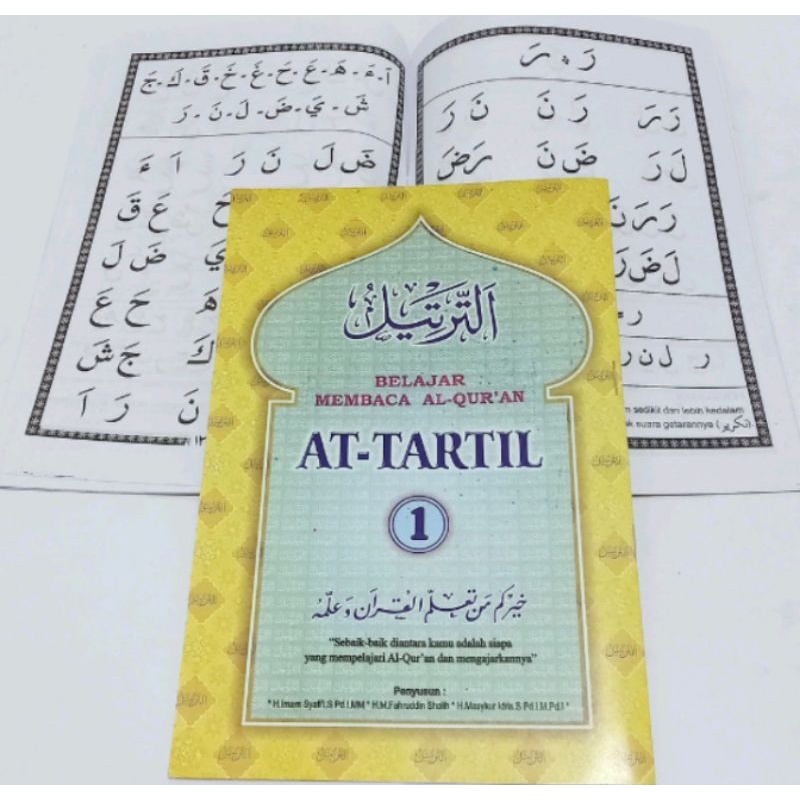 رَ . رَ
رَرَ رَ نَ نَ رَ
لَ رَ ضَ نَ رَضَ
رَرَنَ
لَضَرَ
ر ل ن ر
sedikit dan lebih kedalam
suara getarannya (تكرير).
اَ - ءَ - هَ - عَ - حَ - غَ - خَ - قَ - كَ - جَ
شَ - يَ - ضَ - لَ - نَ - رَ
ضَ لَ نَ رَ اَ ءَ
حَ عَ قَ
يَ ضَ لَ
هَ حَ عَ
كَ جَ شَ
نَ رَ اَ
١٢
التَّرْتِيْلُ
BELAJAR
MEMBACA AL-QUR'AN
AT-TARTIL
1
خَيْرُكُمْ مَنْ تَعَلَّمَ الْقُرْآنَ وَعَلَّمَهُ
"Sebaik-baik diantara kamu adalah siapa
yang mempelajari Al-Qur'an dan mengajarkannya"
Penyusun :
* H.Imam Syafi'i.S Pd.I,MM * H.M.Fahruddin Sholih * H.Masykur Idris.S Pd.I.M,Pd.I *